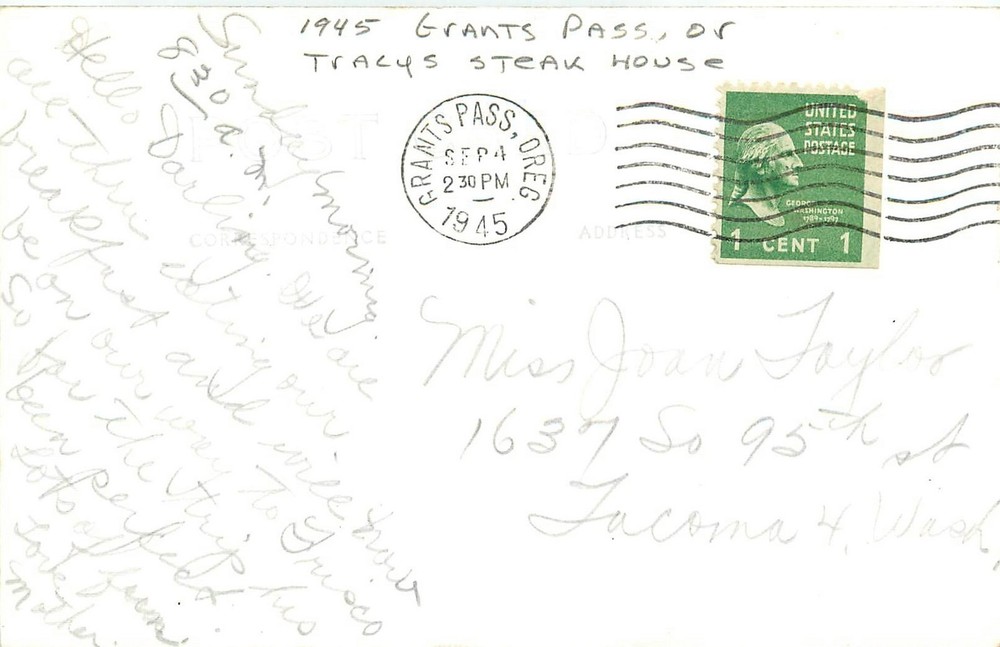 1945 Grants Pass, Or
Tracys Steak House
POST CARD
CORRESPONDENCE
ADDRESS
GRANTS PASS, OREG
SEP 4
2 30 PM
1945
UNITED
STATES
POSTAGE
GEORGE
WASHINGTON
1789-1797
1 CENT 1
Sunday morning
8 30 a.m.
Hello Darling. We are
are thru eating our
breakfast and will
be on our way to Frisco
So far the trip has
been perfect
Lots of
Love from
Mother.
Miss Joan Taylor
1637 So 95th st
Tacoma 4, Wash,